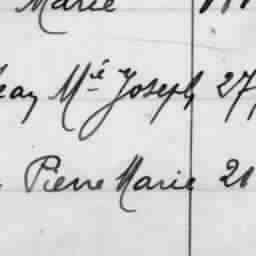 Marie
Jean Mie Joseph 27
Pierre Marie 21